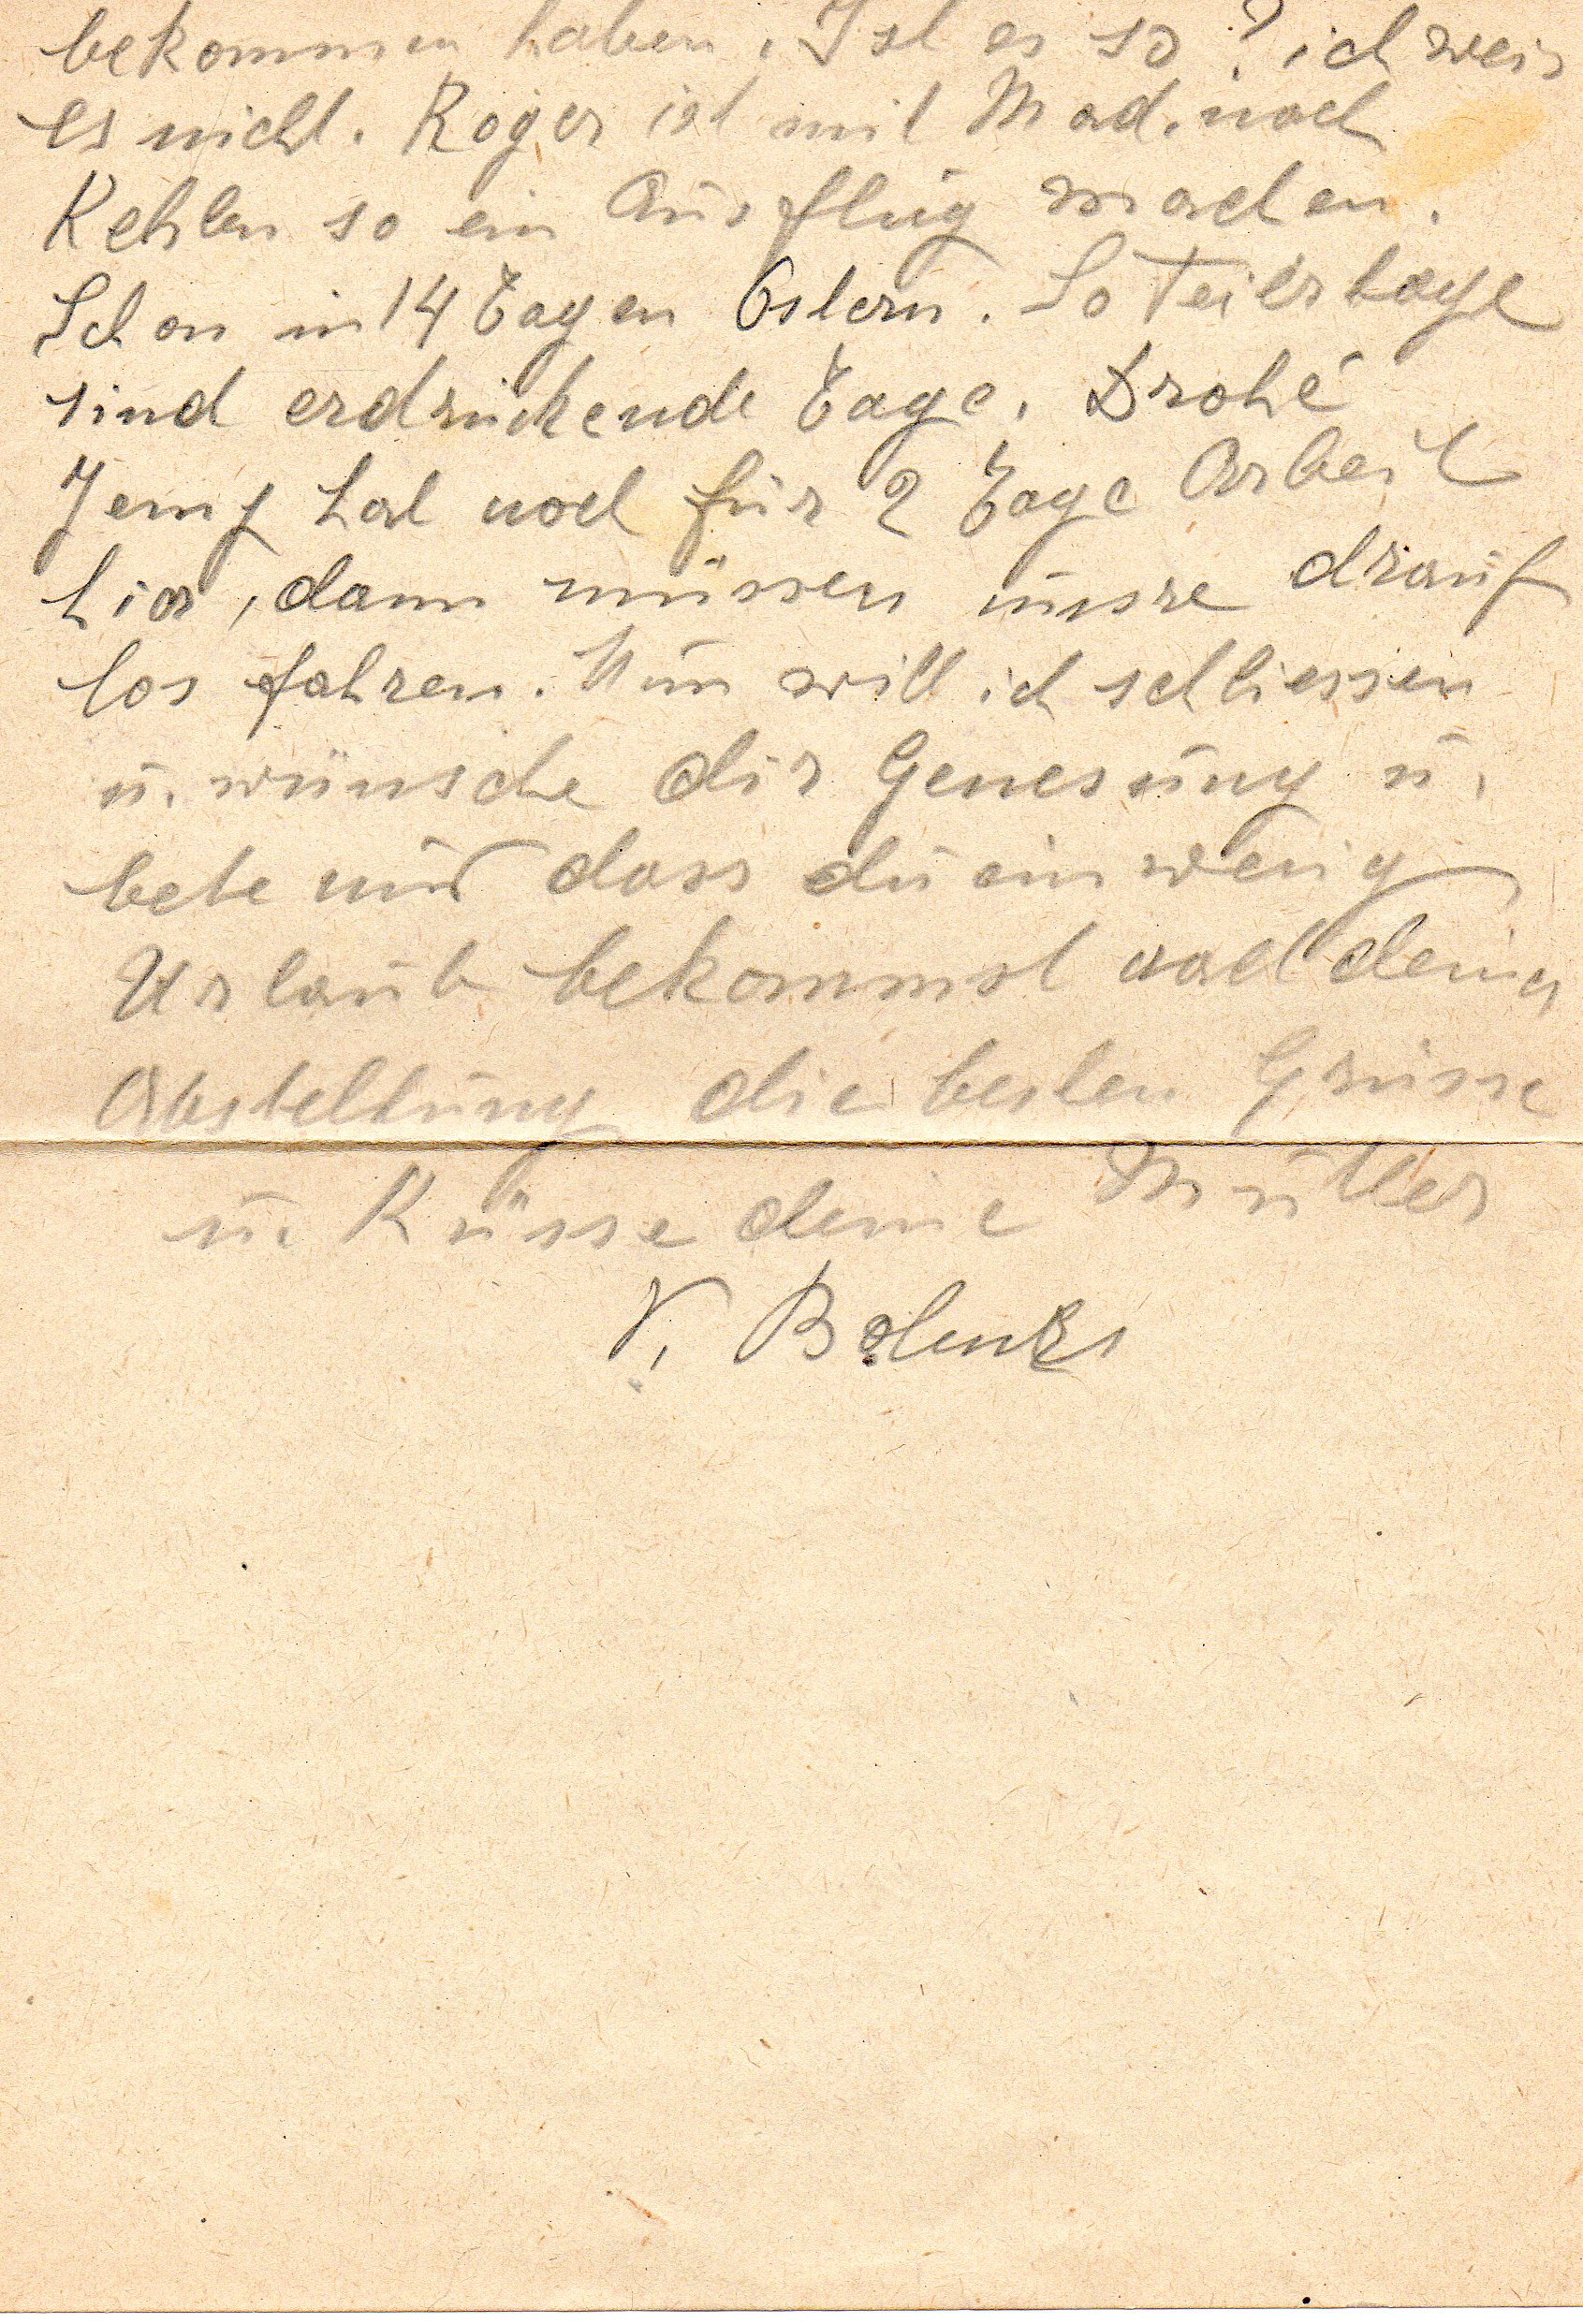 bekommen haben, Ist es so? ich weis
es nicht. Roger ist mit Mad. nach
Kehlen so ein Ausflug machen.
Schon in 14 Tagen Ostern. So Feiertage
sind erdrückende Tage. Drohé
Jemp hat noch für 2 Tage Arbeit
hier, dann müssen unsre drauf
los fahren. Nun will ich schliessen
u. wünsche dir Genesung u.
bete nur dass du ein wenig
Urlaub bekommst nach deiner
Abstellung die besten Grüsse
u. Küsse deine Mutter
V. Bolenks